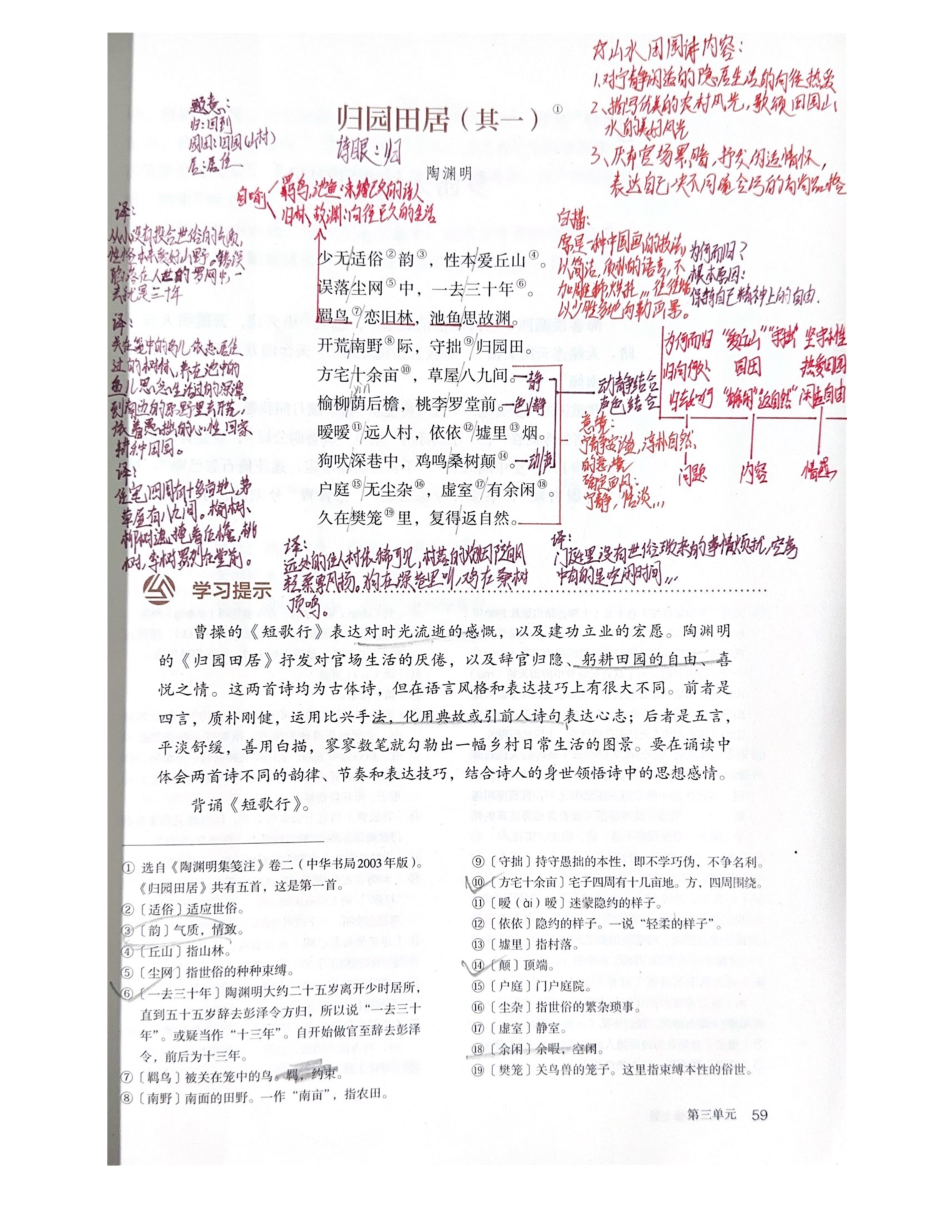 山水田园诗内容：
1.对宁静闲适的隐居生活的向往热爱
2、描写优美的农村风光，歌颂田园山
水自然美好风光
3、厌弃官场黑暗，抒发闲适情怀，
表达自己决不同流合污的高尚品格
题意：
归：回到
园田：田园（山村）
居：居住
归园田居（其一）①
诗眼：归
陶渊明
自喻
羁鸟，池鱼：
旧林，故渊：向往已久的生活
译：
从小没有投合世俗的气质，
性格本来爱好山野。错误
陷落在人世的罗网中，一
去就是三十年
译：
关在笼中的鸟儿依恋居住
过的树林，养在池中的
鱼儿思念生活过的深潭。
到南边的原野里去开荒，
依着愚拙的心性回家
耕种田园。
译：
住宅四周有十多亩地，茅
草屋有八九间。榆树、
柳树遮掩着后檐，桃
树、李树罗列在堂前。
少无适俗②韵③，性本爱丘山④。
误落尘网⑤中，一去三十年⑥。
羁鸟⑦恋旧林，池鱼思故渊。
开荒南野⑧际，守拙⑨归园田。
方宅十余亩⑩，草屋八九间。
榆柳荫后檐，桃李罗堂前。
yìn
暧暧⑪远人村，依依⑫墟里⑬烟。
狗吠深巷中，鸡鸣桑树颠⑭。
户庭⑮无尘杂⑯，虚室⑰有余闲⑱。
久在樊笼⑲里，复得返自然。
静
色静
动声
白描：
原是一种中国画的技法，
以简洁，质朴的语言，不
加雕琢烘托，往往能
以少胜多地勾勒画景。
为何而归？
根本原因：
保持自己精神上的自由．
动静结合
声色结合
意境：
宁静安谧，淳朴自然
的意境
宁静，恬淡
为何而归 “爱丘山”“守拙” 坚守本性
归向何处 园田 热爱田园
归去如何 “返自然” 闲适自由
问题 内容 情感
译：
远处的住人村依稀可见，村落的炊烟随风
轻柔飘扬。狗在深巷里叫，鸡在桑树
顶鸣。
译：
门庭里没有世俗琐杂的事情烦扰，空房
中有的是空闲时间
学习提示
曹操的《短歌行》表达对时光流逝的感慨，以及建功立业的宏愿。陶渊明
的《归园田居》抒发对官场生活的厌倦，以及辞官归隐、躬耕田园的自由、喜
悦之情。这两首诗均为古体诗，但在语言风格和表达技巧上有很大不同。前者是
四言，质朴刚健，运用比兴手法，化用典故或引前人诗句表达心志；后者是五言，
平淡舒缓，善用白描，寥寥数笔就勾勒出一幅乡村日常生活的图景。要在诵读中
体会两首诗不同的韵律、节奏和表达技巧，结合诗人的身世领悟诗中的思想感情。
背诵《短歌行》。
① 选自《陶渊明集笺注》卷二（中华书局2003年版）。
《归园田居》共有五首，这是第一首。
②〔适俗〕适应世俗。
③〔韵〕气质，情致。
④〔丘山〕指山林。
⑤〔尘网〕指世俗的种种束缚。
⑥〔一去三十年〕陶渊明大约二十五岁离开少时居所，
直到五十五岁辞去彭泽令方归，所以说“一去三十
年”。或疑当作“十三年”。自开始做官至辞去彭泽
令，前后为十三年。
⑦〔羁鸟〕被关在笼中的鸟。羁，约束。
⑧〔南野〕南面的田野。一作“南亩”，指农田。
⑨〔守拙〕持守愚拙的本性，即不学巧伪，不争名利。
⑩〔方宅十余亩〕宅子四周有十几亩地。方，四周围绕。
⑪〔暧（ài）暧〕迷蒙隐约的样子。
⑫〔依依〕隐约的样子。一说“轻柔的样子”。
⑬〔墟里〕指村落。
⑭〔颠〕顶端。
⑮〔户庭〕门户庭院。
⑯〔尘杂〕指世俗的繁杂琐事。
⑰〔虚室〕静室。
⑱〔余闲〕余暇，空闲。
⑲〔樊笼〕关鸟兽的笼子。这里指束缚本性的俗世。
第三单元 59